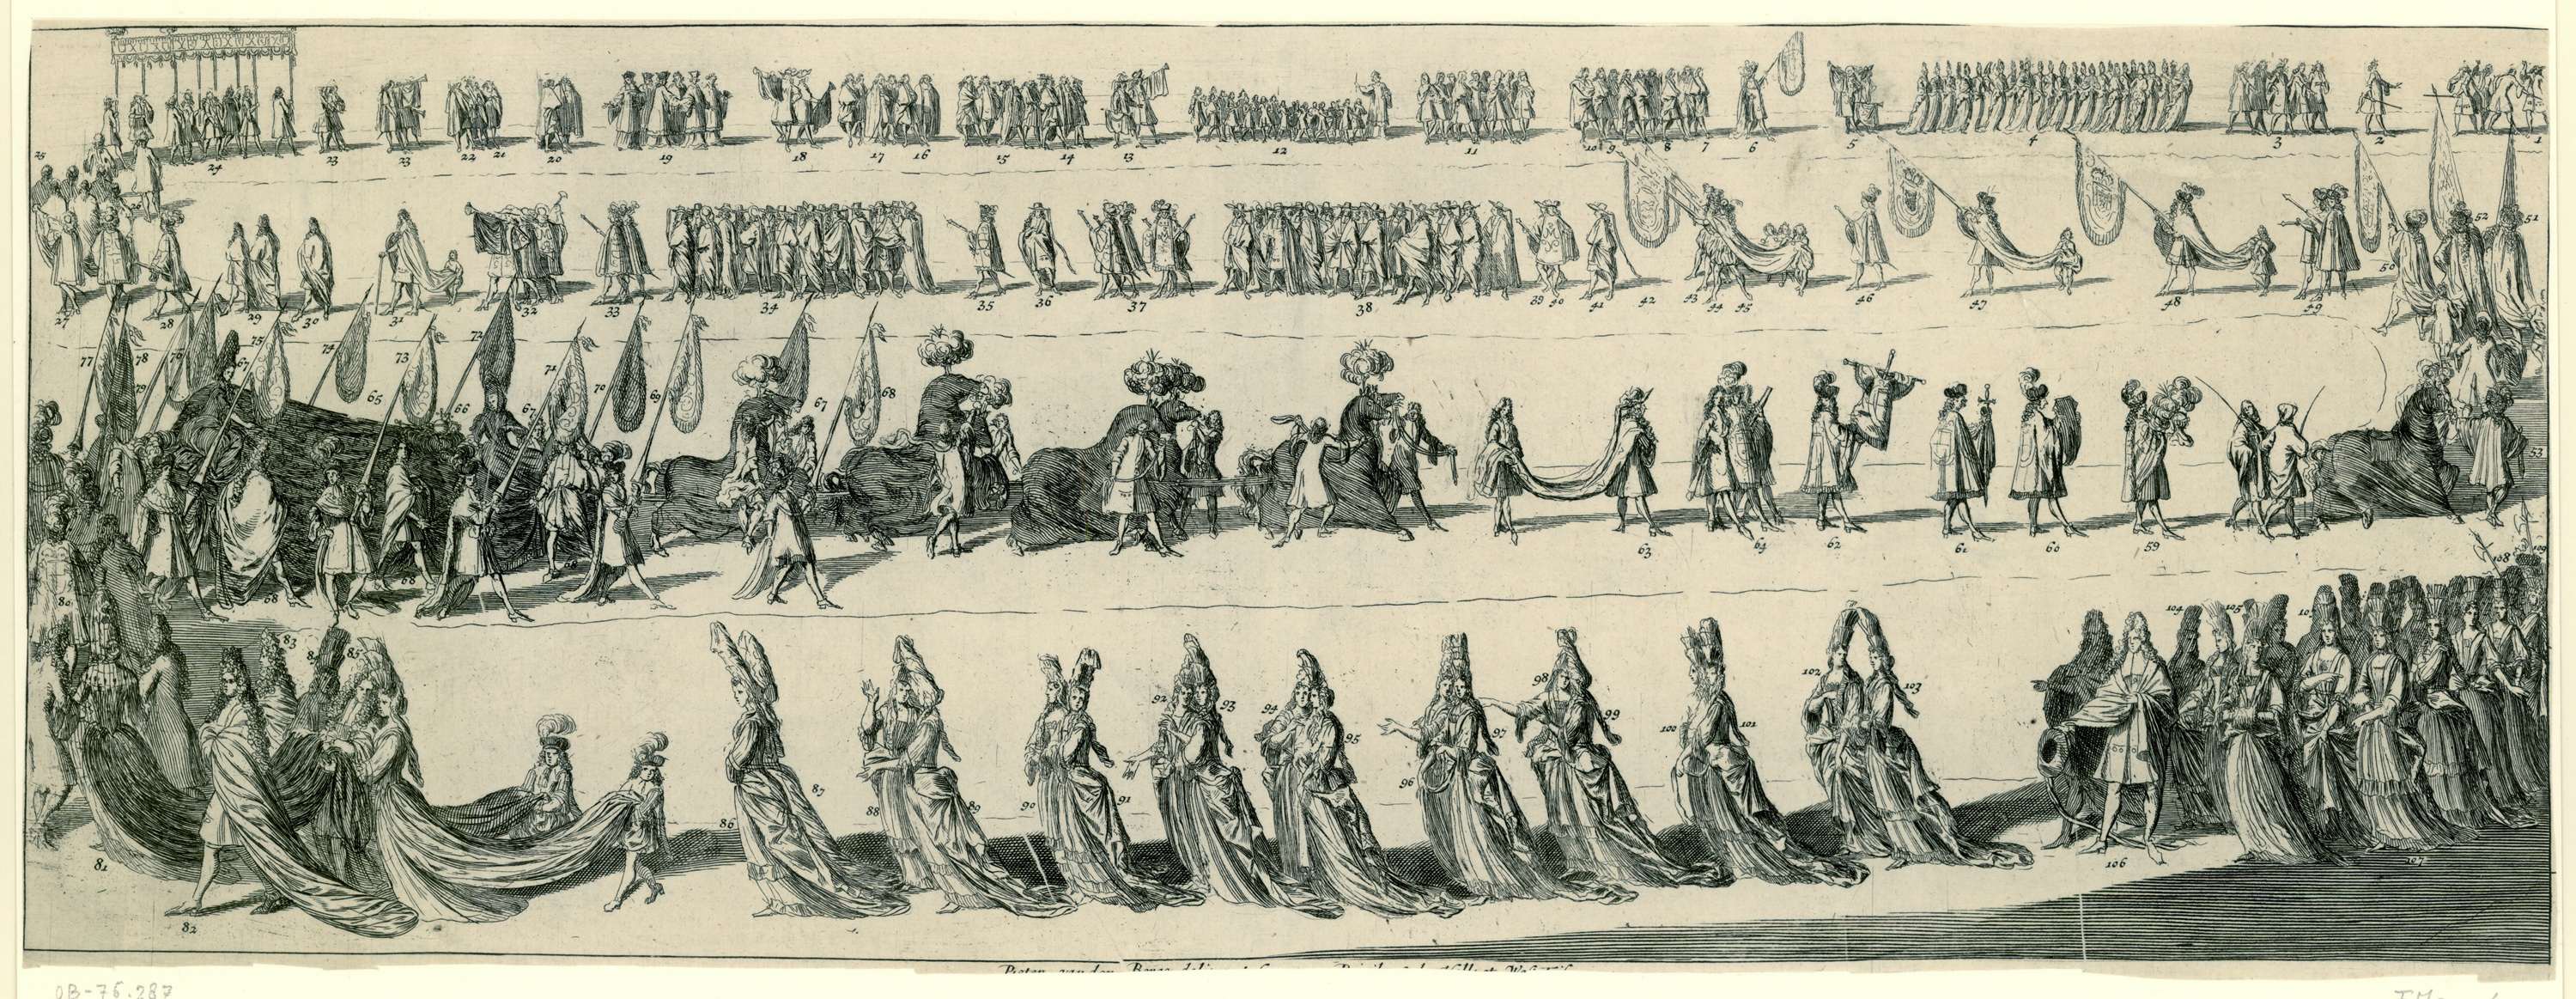 25 24 23 23 22 21 20 19 18 17 16 15 14 13 12 11 10 9 8 7 6 5 4 3 2 1
26
27 28 29 30 31 32 33 34 35 36 37 38 39 40 41 42 43 44 45 46 47 48 49 50 52 51
77 78 79 76 67 75 74 65 73 66 72 67 71 70 69 67 68
68 68 63 64 62 61 60 59 53
80 83 85 92 93 98 99 102 103 104 105 108 109
94 95 97 100 101
81 82 86 87 88 89 90 91 96 106 107
Pieter vanden Berge
OB-76.287